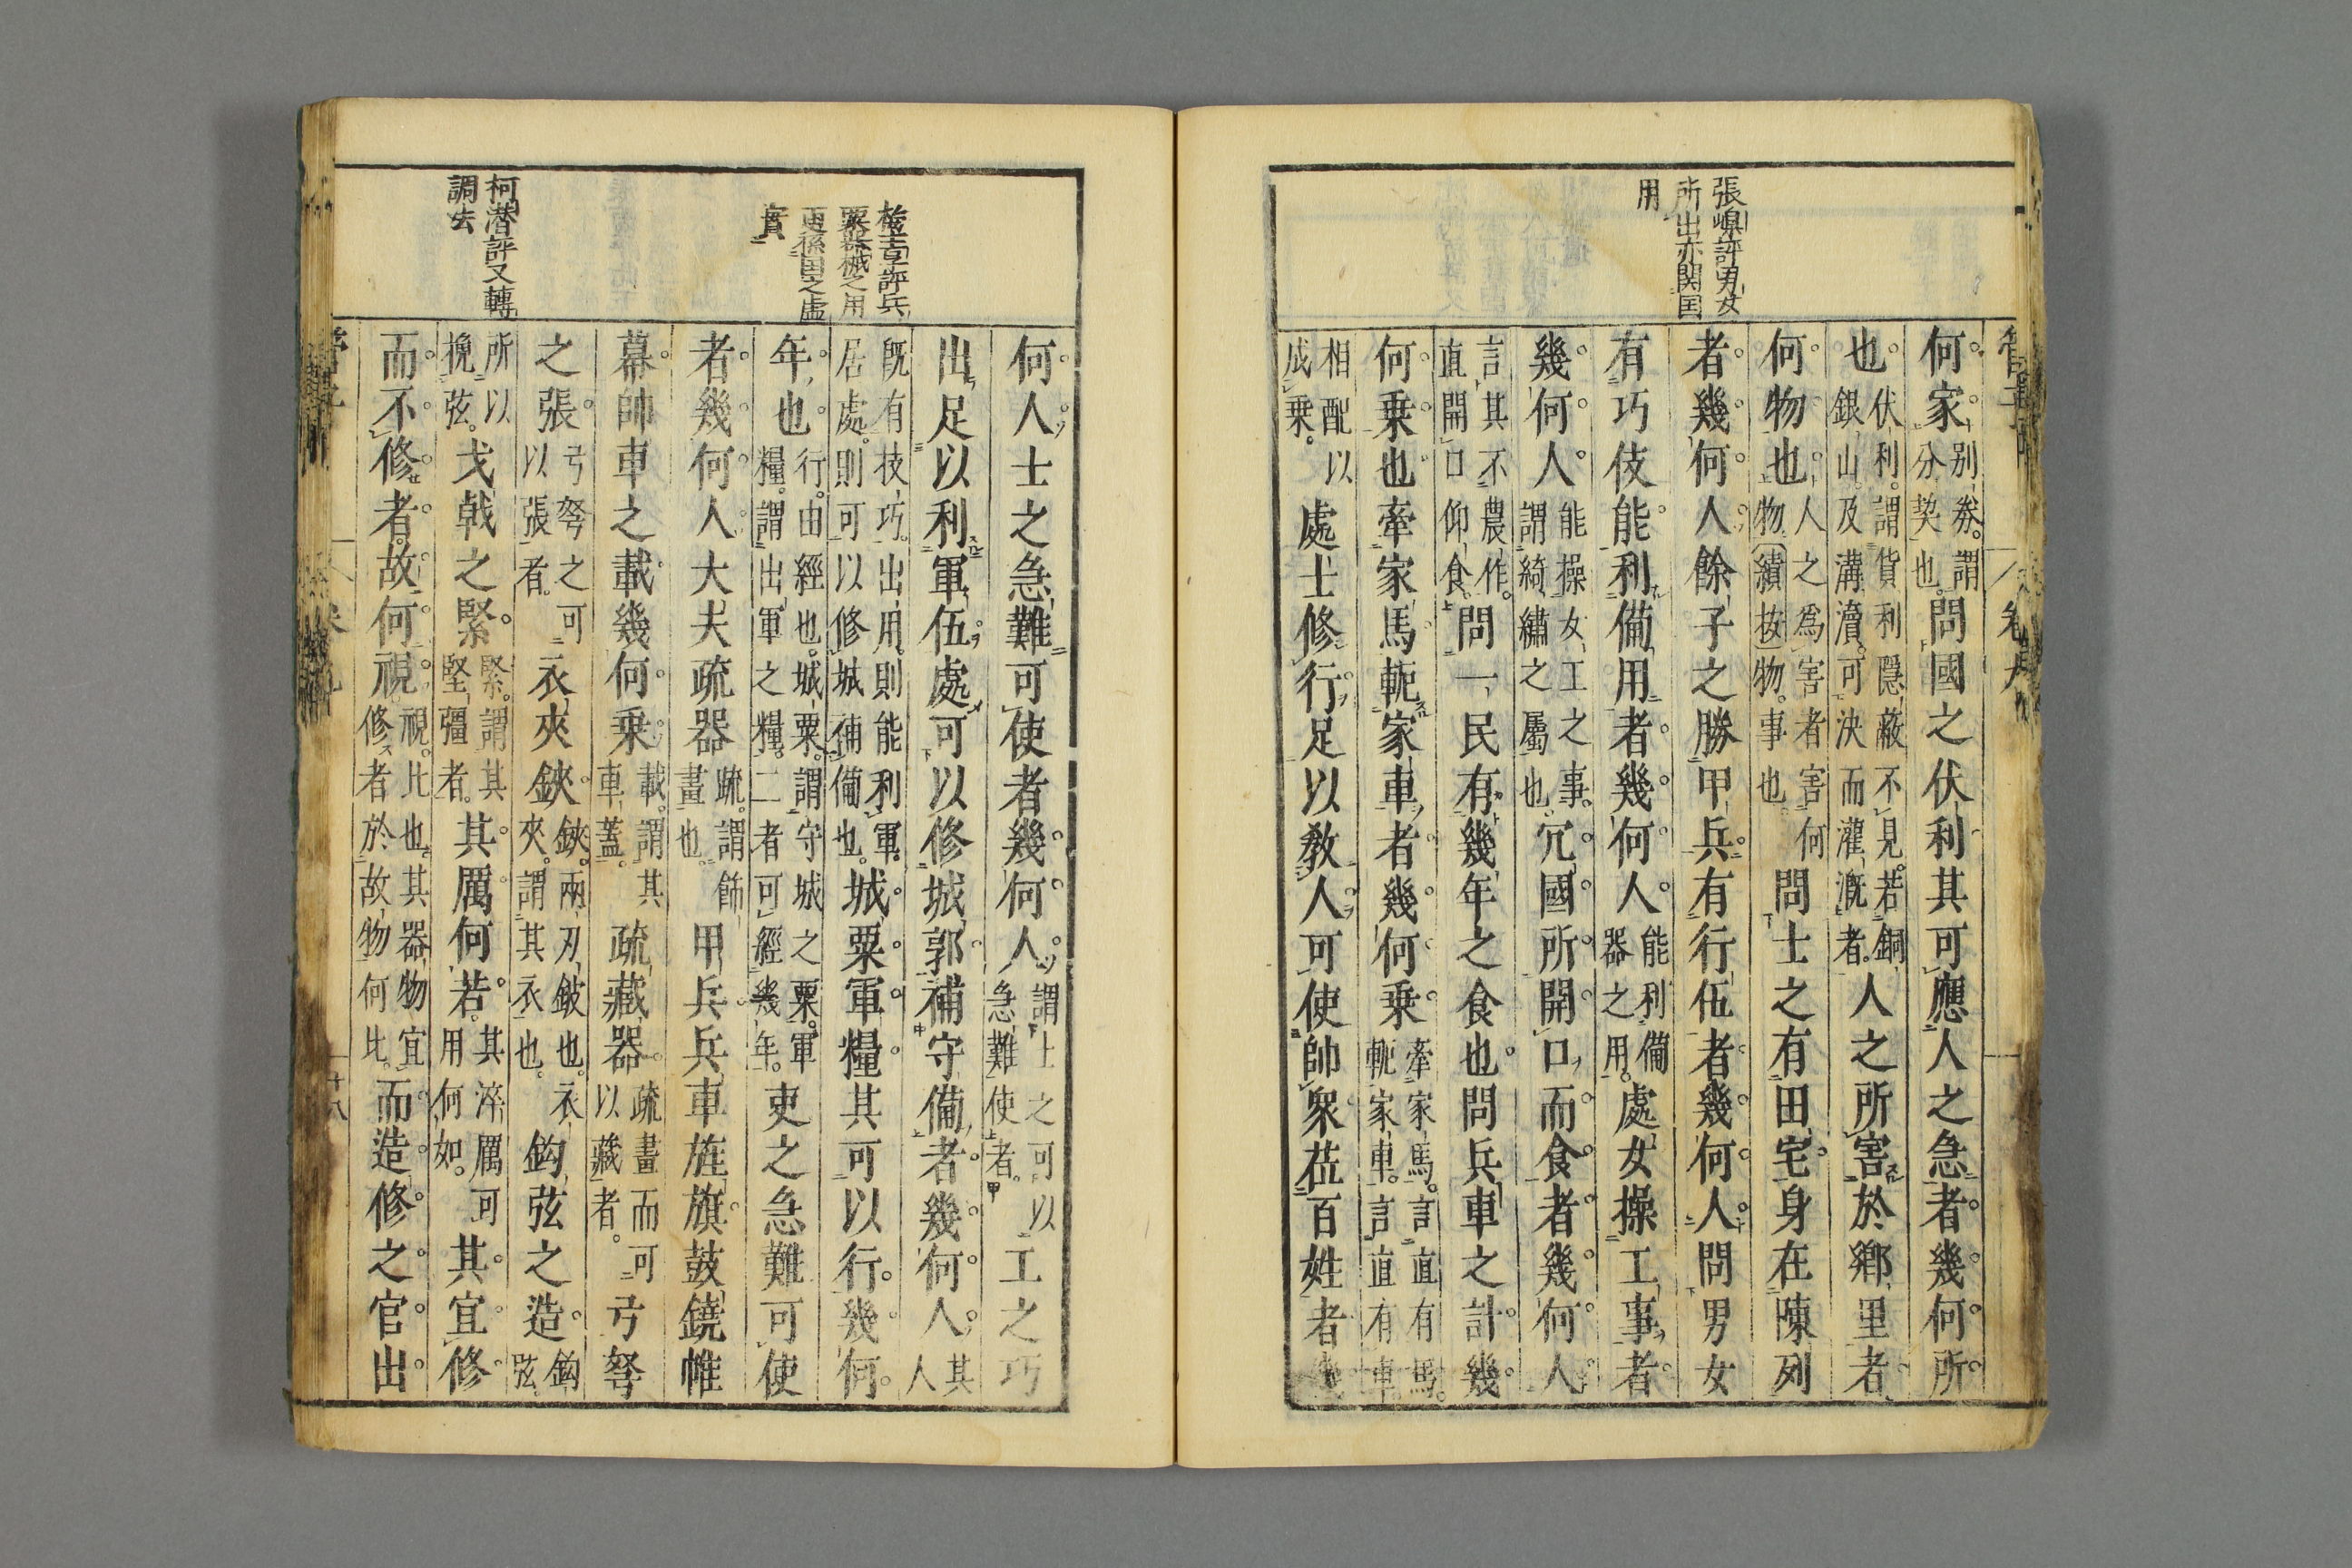 張嵲評男女
所出亦関囯
用
何家別券謂分契也問國之伏利其可應人之急者幾何所
也伏利謂貨利隱蔽不見若銅銀山及溝瀆可決而灌漑者人之所害於鄉里者
何物也人之爲害者害何物續按物事也問士之有田宅身在陳列
者幾何人餘子之勝甲兵有行伍者幾何人問男女
有巧伎能利備用者幾何人能利備器之用處女操工事者
幾何人能操女工之事謂綺繡之屬也冗國所開口而食者幾何人
言其不農作直開口仰食問一民有幾年之食也問兵車之計幾
何乗也牽家馬軛家車者幾何乗牽家馬言直有馬軛家車言直有車
相配以成乗處士修行足以敎人可使帥衆莅百姓者幾
評兵
粟器械之用
更係囯之虛
實
柯潜評又轉
調去
何人士之急難可使者幾何人謂士之可以急難使者工之巧
出足以利軍伍處可以修城郭補守備者幾何人其人
旣有技巧出用則能利軍居處則可以修城補備也城粟軍糧其可以行幾何
年也行由經也城粟謂守城之粟軍糧謂出軍之糧二者可經幾年吏之急難可使
者幾何人大夫疏器疏謂飾畫也甲兵兵車旌旗鼓鐃帷
幕帥車之載幾何乗載謂其車蓋疏藏器疏畫而可以藏者弓弩
之張弓弩之可以張者衣夾鋏鋏兩刃鈹也衣夾謂其衣也鈎弦之造鈎弦
所以挽弦戈戟之緊緊謂其堅彊者其厲何若其淬厲可用何如其宜修
而不修者故何視視比也其器物宜修者於故物何比而造修之官出